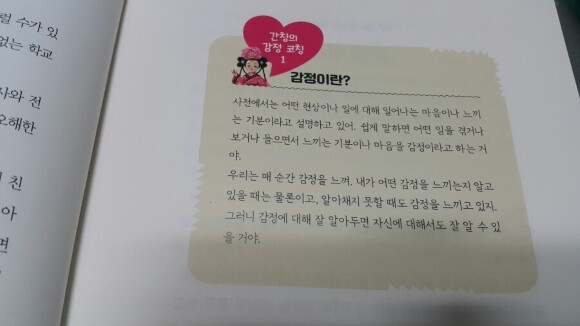 럴 수가 있
없는 학교
사와 전
오해한
친
아
면
간칭의
감정 코칭
1
감정이란?
사전에서는 어떤 현상이나 일에 대해 일어나는 마음이나 느끼
는 기분이라고 설명하고 있어. 쉽게 말하면 어떤 일을 겪거나
보거나 들으면서 느끼는 기분이나 마음을 감정이라고 하는 거
야.
우리는 매 순간 감정을 느껴. 내가 어떤 감정을 느끼는지 알고
있을 때는 물론이고, 알아채지 못할 때도 감정을 느끼고 있지.
그러니 감정에 대해 잘 알아두면 자신에 대해서도 잘 알 수 있
을 거야.